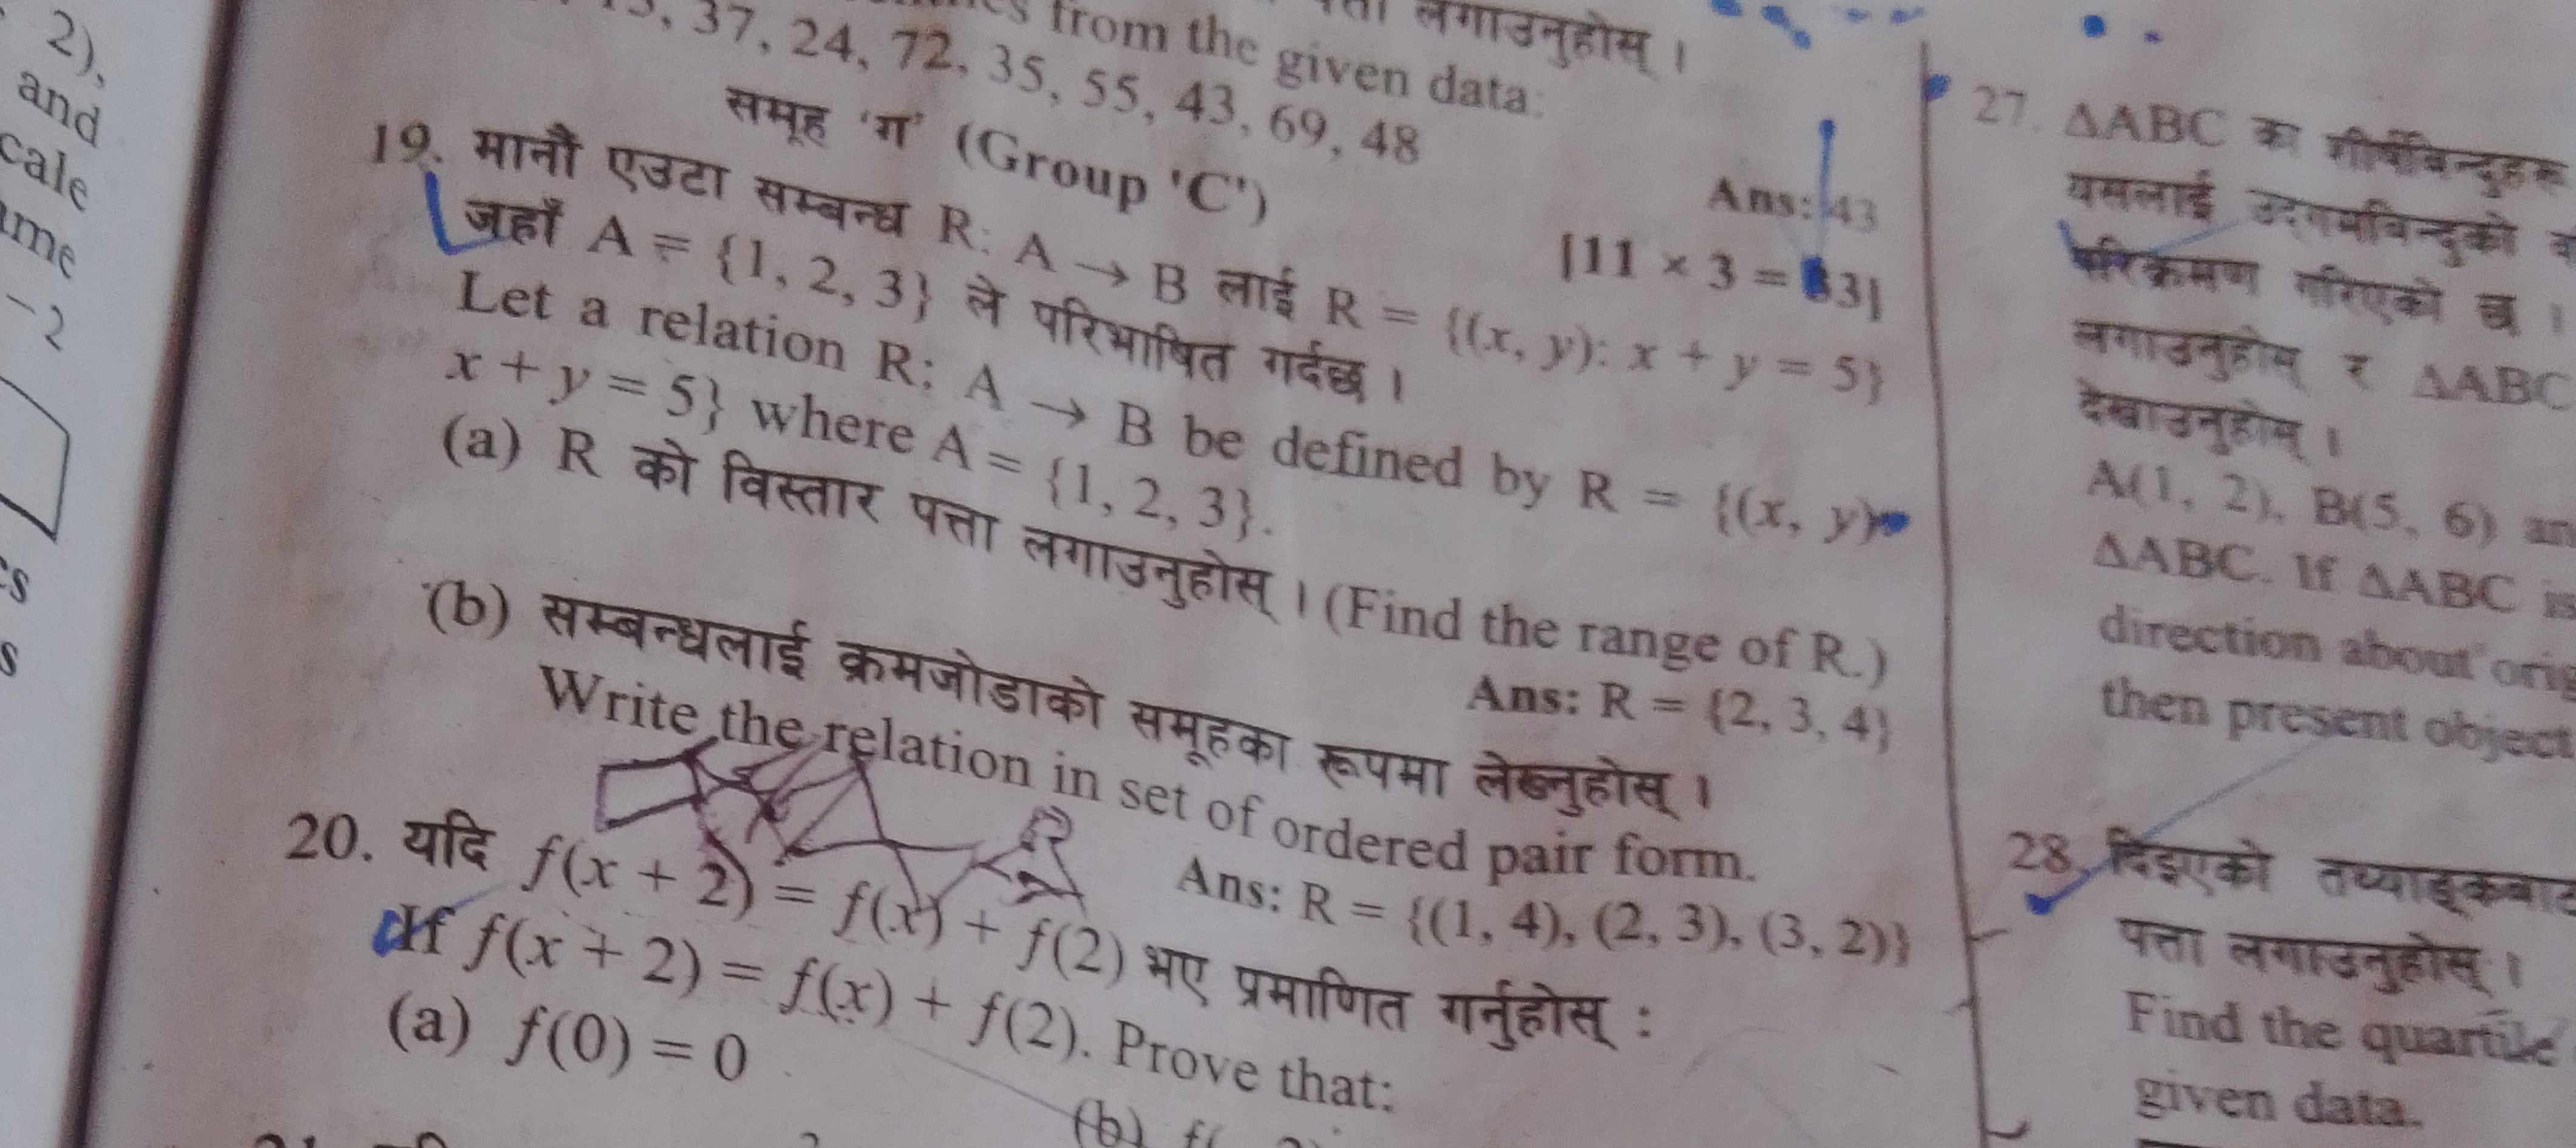 2),
and
cale
- 2
पत्ता लगाउनुहोस् ।
from the given data:
37, 24, 72, 35, 55, 43, 69, 48
Ans: 43
समूह 'ग' (Group 'C')
[11 × 3 = 33]
19. मानौं एउटा सम्बन्ध R: A → B लाई R = {(x, y): x + y = 5}
जहाँ A = {1, 2, 3} ले परिभाषित गर्दछ ।
Let a relation R: A → B be defined by R = {(x, y)
x + y = 5} where A = {1, 2, 3}.
(a) R को विस्तार पत्ता लगाउनुहोस् । (Find the range of R.)
Ans: R = {2, 3, 4}
(b) सम्बन्धलाई क्रमजोडाको समूहका रूपमा लेख्नुहोस् ।
Write the relation in set of ordered pair form.
Ans: R = {(1, 4), (2, 3), (3, 2)}
20. यदि f(x + 2) = f(x) + f(2) भए प्रमाणित गर्नुहोस् :
If f(x + 2) = f(x) + f(2). Prove that:
(a) f(0) = 0
(b)
27. ΔABC का शीर्षविन्दुहरू
यसलाई उद्गमविन्दुको
परिक्रमण गरिएको छ ।
लगाउनुहोस् र ΔABC
देखाउनुहोस् ।
A(1, 2), B(5, 6)
ΔABC. If ΔABC
direction about
then present object
28. दिइएको
पत्ता लगाउनुहोस् ।
Find the quartile
given data.